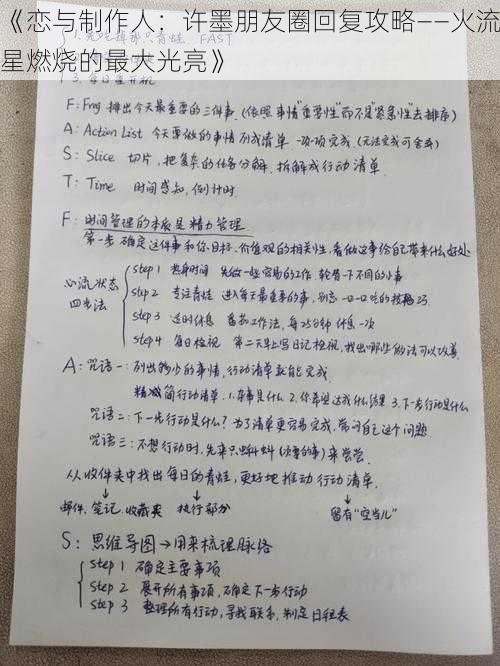 《恋与制作人：许墨朋友圈回复攻略——火流
星燃烧的最大光亮》
F：Frog 排出今天最重要的三件事.(依照事情"重要性"而不是"紧急性"去排序)
A：Action List 今天要做的事情列成清单 一项一项完成.(无法完成可舍弃)
S：Slice 切片，把复杂的任务分解.拆解成行动清单.
T：Time 时间感知，倒计时.
F：时间管理的本质是精力管理.
第一步 确定这件事和你.目标.价值观的相关性，看做这事给自己带来什么好处
心流状态
四步法
step 1 热身时间 先做一些容易的工作 轮替一下不同的小事
step 2 专注青蛙 进入每天最重要的事，别忘一口一口吃的
step 3 适时休息 番茄工作法，每25分钟休息一次
step 4 每日检视 第二天早上写日记检视，找出哪些做法可以改善.
A：咒语一：列出够小的事情，行动清单就能完成.
精减简行动清单.1.有事是什么 2.你希望达成什么结果 3.下一步行动是什么
咒语二：下一步行动是什么？为了清单更容易完成，常问自己这个问题
咒语三：不想行动时，先来只蝌蚪(次要的事)来尝尝.
从收件夹中找出每日的青蛙，更好地推动行动清单.
邮件.笔记.收藏夹 执行部分 留有"空当儿"
S：思维导图→用来梳理脉络
step 1 确定主要事项
step 2 展开所有事项，确定下一步行动
step 3 整理所有行动，寻找联系，制定日程表